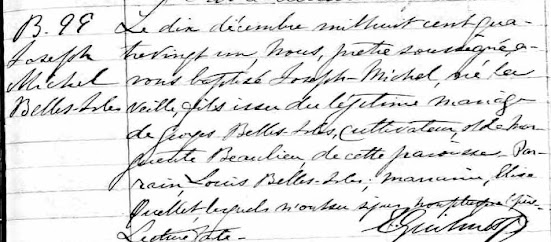 B. 99
Joseph
Michel
Belles-Isles
Le dix décembre mil huit cent qua-
trevingt un, Nous, prêtre soussigné a-
vons baptisé Joseph-Michel, né la
veille, fils issu du légitime mariage
de Georges Belles-Isles, cultivateur, et de Mar-
guerite Beaulieu, de cette paroisse. Par-
rain, Louis Belles-Isles: marraine, Elise
Ouellet, lesquels n'ont su signer non plus que le père.
Lecture faite.